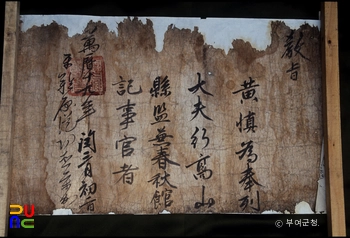 敎旨
黃愼爲奉列
大夫行高山
縣監兼春秋館
記事官者
萬曆十九年閏三月初二日
PUBC
© 부여군청.